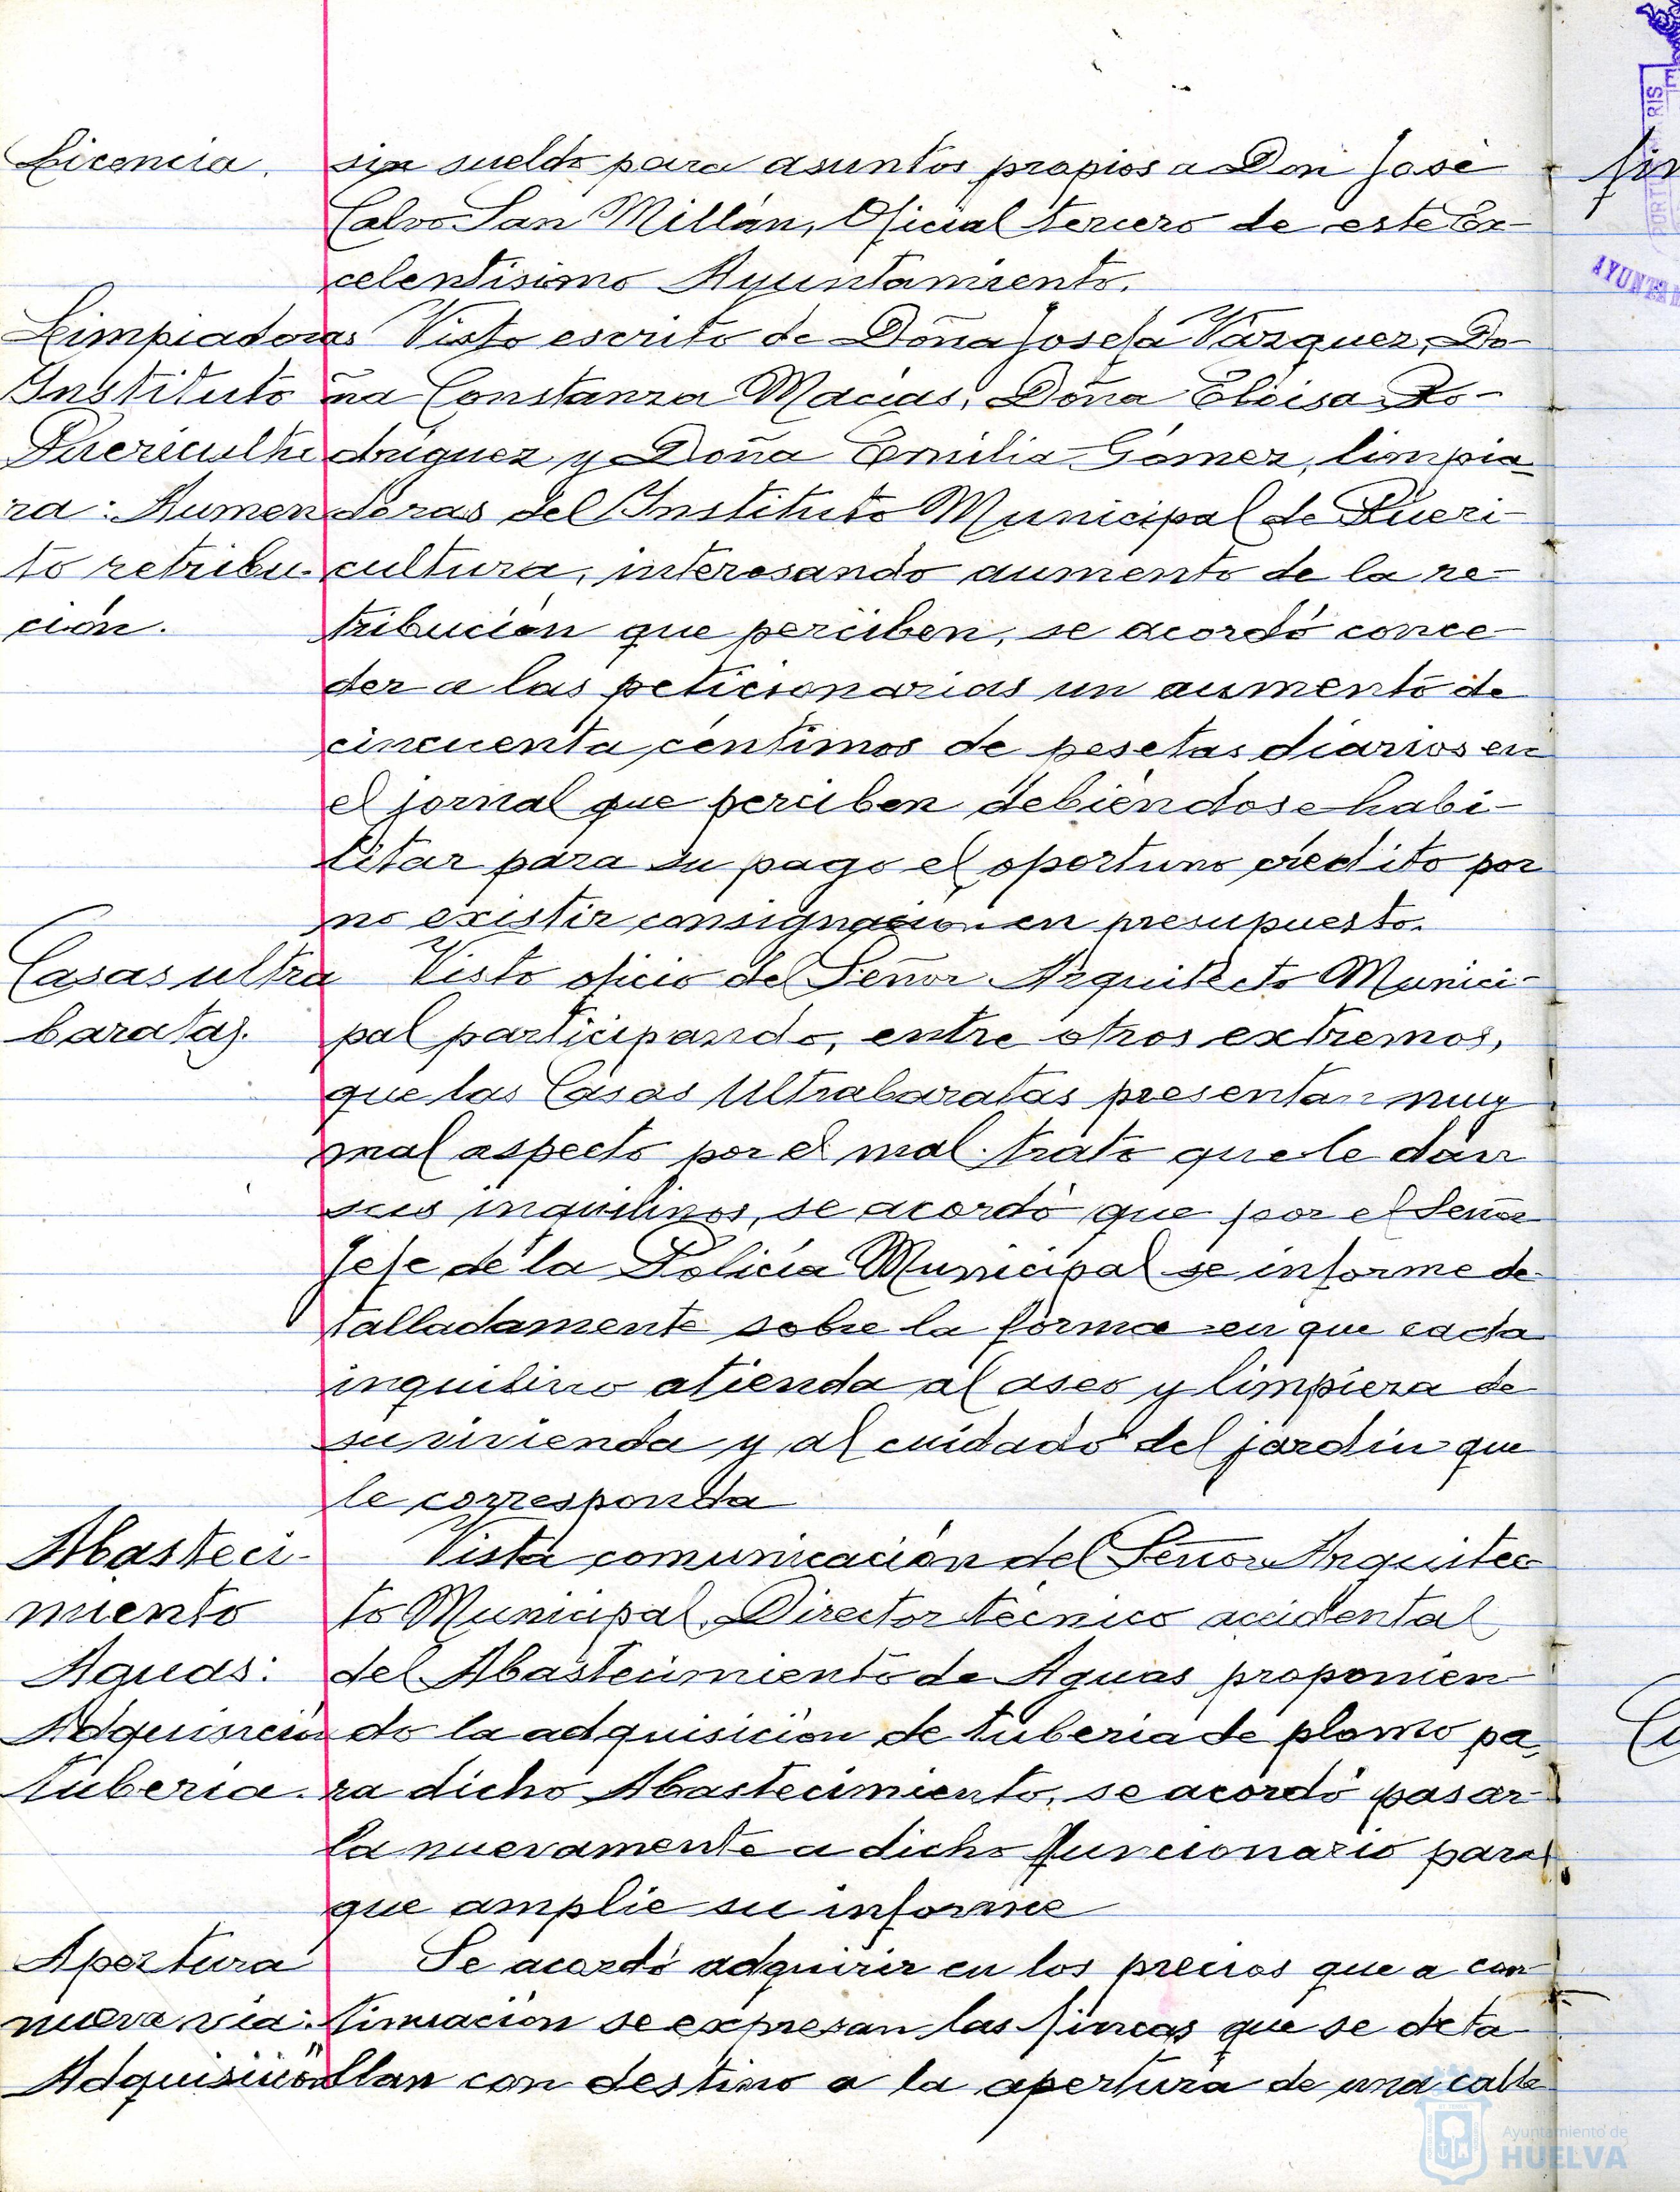 Licencia. sin sueldo para asuntos propios a Don José
Calvo San Millán, Oficial tercero de este Ex-
celentisimo Ayuntamiento.
Limpiadoras Visto escrito de Doña Josefa Vázquez, Do-
Instituto ña Constanza Macías, Doña Eloisa Ro-
Puericultu driguez y Doña Emilia Gómez, limpia
ra: Aumen doras del Instituto Municipal de Pueri-
to retribu- cultura, interesando aumento de la re-
ción. tribución que perciben, se acordó conce-
der a las peticionarias un aumento de
cincuenta céntimos de pesetas diarios en
el jornal que perciben debiéndose habi-
litar para su pago el oportuno crédito por
no existir consignación en presupuesto.
Casas ultra Visto oficio del Señor Arquitecto Munici-
baratas. pal participando, entre otros extremos,
que las Casas Ultrabaratas presentan muy
mal aspecto por el mal trato que le dan
sus inquilinos, se acordó que por el Señor
Jefe de la Policía Municipal se informe de-
talladamente sobre la forma en que cada
inquilino atienda al aseo y limpieza de
su vivienda y al cuidado del jardín que
le corresponda
Abasteci- Vista comunicación del Señor Arquitec
miento to Municipal, Director técnico accidental
Aguas: del Abastecimiento de Aguas proponien-
Adquisición do la adquisición de tuberia de plomo pa
tuberia. ra dicho Abastecimiento, se acordó pasar-
la nuevamente a dicho funcionario para
que amplie su informe
Apertura Se acordó adquirir en los precios que a con
nueva vía: tinuación se expresan las fincas que se deta
Adquisición llan con destino a la apertura de una calle
Ayuntamiento de
HUELVA